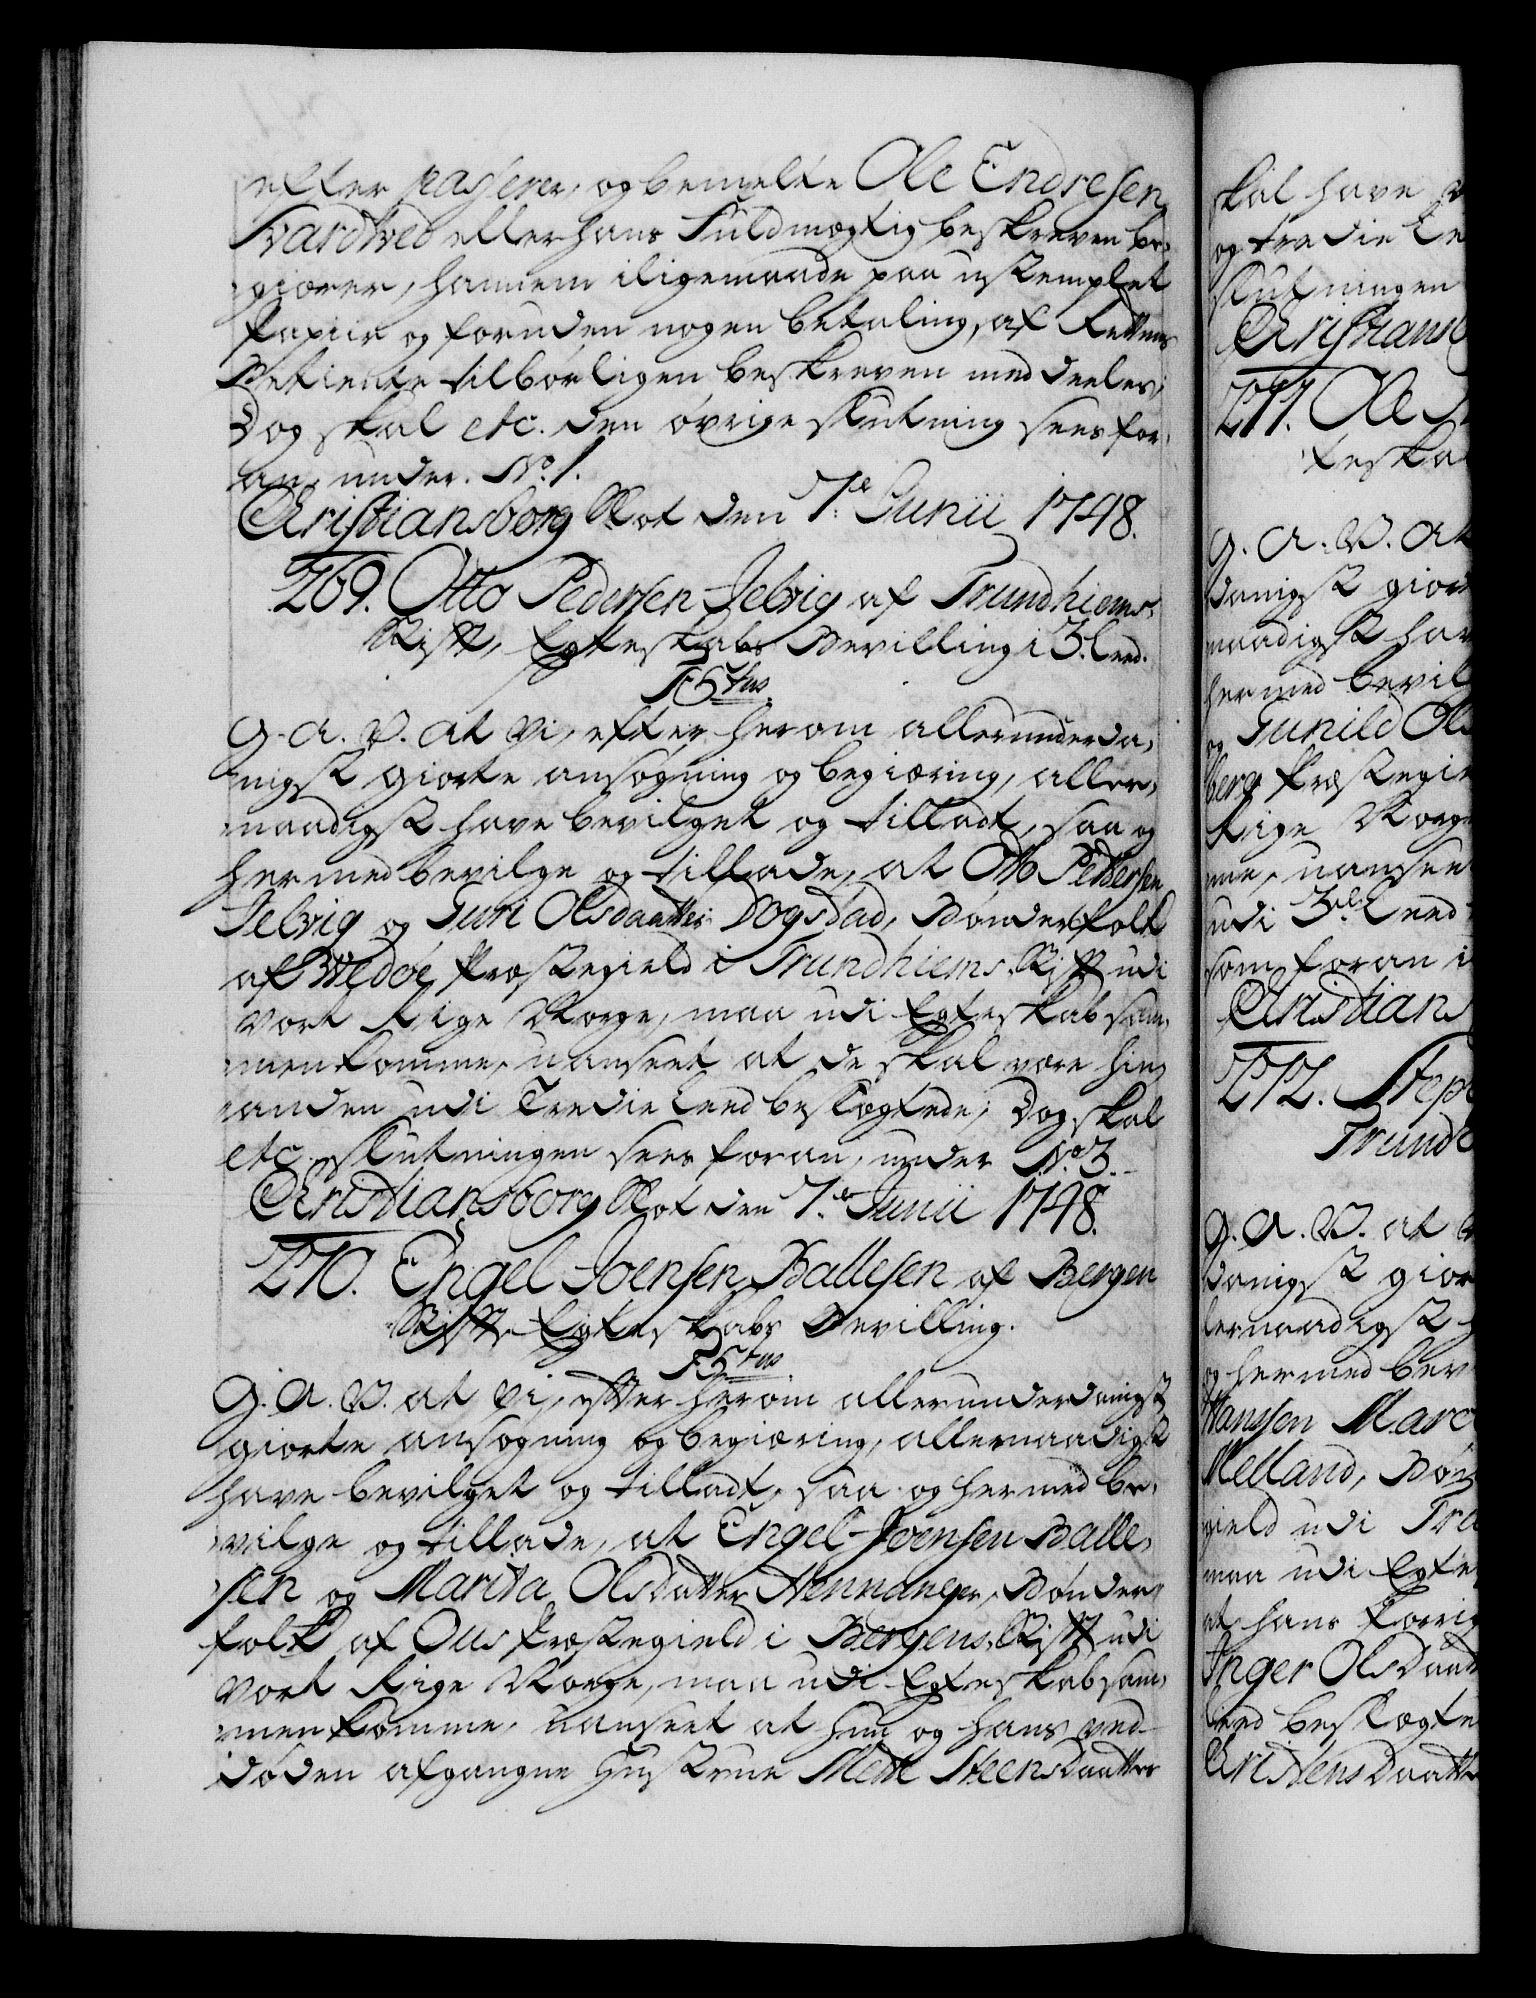 efter passerer, og bemelte Ole Endresen
Svardtved eller hans Fuldmægtig beskreven be-
giærer, hannem iligemaade paa ustemplet
Papiir og foruden nogen betaling, af Rettens
Betiente tilbørligen beskreven meddeeles;
Dog skal etc. den øvrige slutning sees for-
an, under No. 1.
Christiansborg Slot den 7.de Junii 1748.
269. Otto Pedersen Jelvig af Trundhiems-
Stift, Egteskabs Bevilling i 3. Leed.
F 5tus
G. A. V. at Vi, efter herom allerunderda-
nigst giorte ansøgning og begiæring, aller-
naadigst have bevilget og tilladt, saa og
hermed bevilge og tillade, at Otto Pedersen
Jelvig og Guri Olsdaatter Dogstad, Bønderfolk
af Wedøe Præstegield i Trundhiems Stift udi
Vort Rige Norge, maa udi Egteskab sam-
menkomme, uanseet at de skal være hin-
anden udi Tredie Leed beslægtede; Dog skal
etc. slutningen sees foran, under No. 3.
Christiansborg Slot den 7.de Junii 1748.
270. Engel Joensen Ballesen af Bergens
Stift Egteskabs Bevilling.
F 5tus
G. A. V. at Vi, efter herom allerunderdanigst
giorte ansøgning og begiæring, allernaadigst
have bevilget og tilladt, saa og hermed be-
vilge og tillade, at Engel Joensen Balle-
sen og Marita Olsdatter Hennanger, Bønder-
folk af Ous Præstegield i Bergens Stift udi
Vort Rige Norge, maa udi Egteskab sam-
menkomme, uanseet at hun og hans ved
døden afgangne Hustrue Mette Steensdaatter
skal have
og tredie Le
slutningen
Christiansb
271. Ole
teska
G. A. V. at
danigst gior
naadigst hav
hermed bevil
og Gunild Ols
berg Præstegie
Rige Norge
me, uanseet
udi 3de Leed
som foran
Christians
272. Steph
Trundh
G. A. V. at
danigst gior
lernaadigst h
og hermed bev
Hanssen Mar
Melland, Bøn
gield udi Tru
maa udi Egte
at hans forrig
Inger Olsdaat
Leed beslægte
Christensdaatte